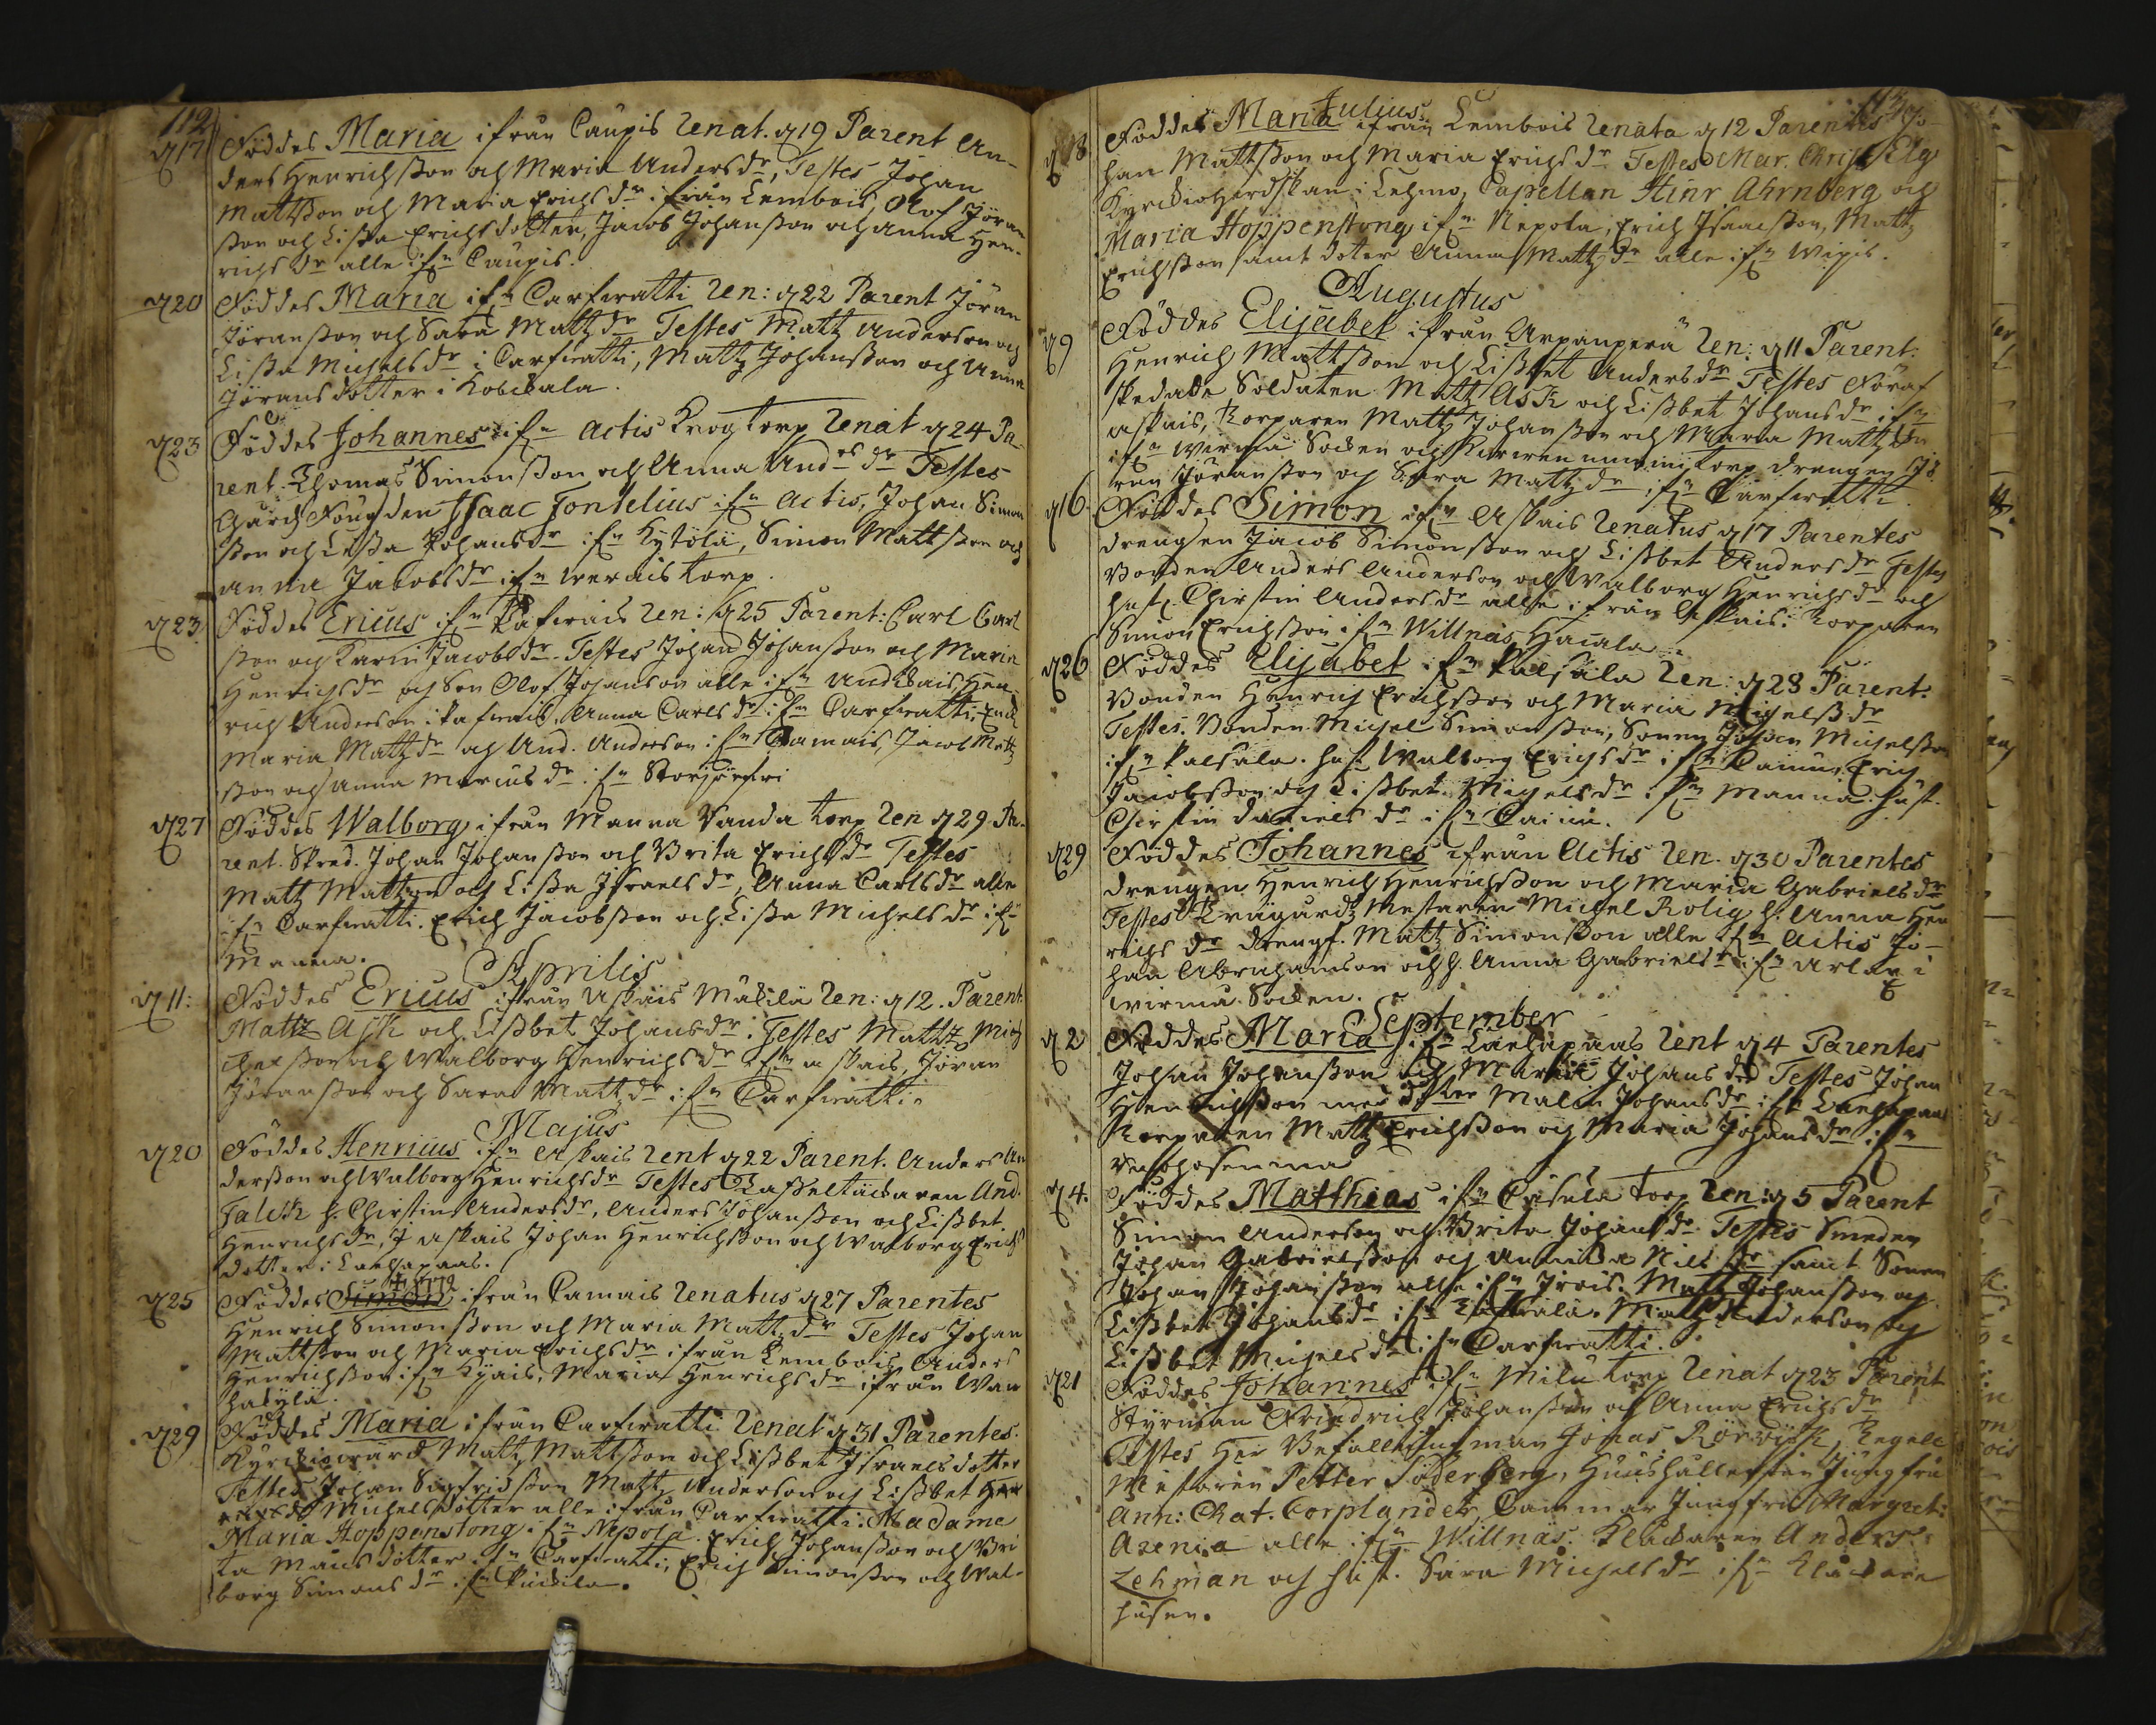 112
d 17 Föddes Maria ifrån Caupis Renat. d 19 Parent An-
ders Henrichsson och Maria Anders dr, Testes Johan
Mattsson och Maria Erichs dr ifrån Lembois, Olof Jöran
sson och Lissa Erichsdotter, Jacob Johansson och Anna Hen-
richs dr alle ifn Caupis.
d 20 Föddes Maria ifn Carfwatti Ren: d 22 Parent Jöran
Jöransson och Sara Mattz dr Testes Mattz Anderson och
Lissa Michels dr i Carfwatti, Mattz Johansson och Anna
Jöransdotter i Kobikala.
d 23 Föddes Johannes ifn Actis Krogtorp Renat d 24 Pa-
rent. Thomas Simonsson och Anna Anders dr Testes
Gårdz Fougden Isaac Fontelius ifn Actis, Johan Simon
sson och Lissa Johans dr ifn Kytölä, Simon Mattsson och
Anna Jakobs dr ifn torp.
d 23 Föddes Ericus ifn Ren: d 25 Parent: Carl Carl
sson och Karin Jacobs dr. Testes Johan Johansson och Maria
Henrichs dr och Son Olof Johanson alle ifn Hen-
rich Anderson i Anna Carls dr ifn Carfwatti,
Maria Mattz dr och And. Anderson ifn Camais, Jacob Mattz
sson och Anna Marcus dr ifn
d 27 Föddes Walborg ifrån Manna Vanda torp Ren d 29 Pa-
rent. Skred. Johan Johansson och Brita Erichs dr Testes
Mattz Mattzon och Lissa Israels dr, Anna Carls dr alle
ifn Carfwatti. Erich Jacobsson och Lissa Michels dr ifn
Manna.
Aprilis
d 11: Föddes Ericus ifrån Askais Mäkilä Ren: d 12. Parent:
Mattz Ask och Lissbet Johans dr. Testes Mattz Mich
elsson och Walborg Henrichs dr ifn Askais, Jöran
Jöransson och Sara Mattz dr ifn Carfwatti.
Majus
d 20 Föddes Henricus ifn Askais Rent d 22 Parent. Anders An
dersson och Walborg Henrichs dr Testes And.
Falck h. Chirstin Anders dr, Anders Johansson och Lissbet
Henrichs dr, i Askais Johan Henrichsson och Walborg Erichs
dotter i Laehapaas.
d 25 Föddes Simon ifrån Camais Renatus d 27 Parentes
Henrich Simonsson och Maria Mattz dr Testes Johan
Mattsson och Maria Erichs dr ifrån Lembois Anders
Henrichsson ifn Kyais, Maria Henrichs dr ifrån Wan
hakylä.
d 29 Föddes Maria ifrån Carfwatti Renat d 31 Parentes.
Kyrckiowärd Mattz Mattsson och Lissbet Israelsdotter
Testes Johan Sigfridsson Mattz Anderson och Lissbet
Michelsdotter alle ifrån Carfwatti. Madame
Maria Hoppenstong ifn Nepola. Erich Johansson och Bri
ta Matsdotter ifn Carfwatti, Erich Simonsson och Wal-
borg Simons dr ifn
Julius
d 8 Föddes Maria ifrån Lembois Renata d 12 Parentes Jo-
han Mattsson och Maria Erichs dr Testes Mar. Christ. Elg
Kyrckioherdskan i Lehmo, Capellan Hinr Ahrnberg och
Maria Hoppenstong ifn Nepola, Erich Isaacsson, Mattz
Erichsson samt doter Anna Mattz dr alle ifn Wipis.
Augustus
d 9 Föddes Elisabet ifrån Ren: d 11 Parent:
Henrich Mattsson och Lissbet Anders dr Testes
Soldaten Mattz Ask och Lissbet Johans dr ifn
Askais, Torparen Mattz Johansson och Maria Mattz dr
ifn Wirmo Socken och torp drengen Jö
ran Jöransson och Sara Mattz dr ifn Carfwatti.
d 16 Föddes Simon ifn Askais Renatus d 17 Parentes
drengen Jacob Simonsson och Lissbet Anders dr Testes
Bonden Anders Anderson och Walborg Henrichs dr och
hust. Chirstin Anders dr alle ifrån Askais. Torparen
Simon Erichsson ifn Willnäs
d 26 Föddes Elisabet ifn Palsala Ren: d 28 Parent:
Bonden Henrich Erichsson och Maria Michels dr
Testes. Bonden Michel Simonsson, Sonen Johan Michelsson
ifn Palsala. hust Walborg Erichs dr ifn Erich
Jacobsson och Lissbet Michels dr ifn Manna. hust.
Chirstin Daniels dr ifn
d 29 Föddes Johannes ifrån Actis Ren. d 30 Parentes
drengen Henrich Henrichsson och Maria Gabriels dr
Testes Trägårdz Mestaren Michel Rolig h. Anna Hen
richs dr drengs. Mattz Simonsson alle ifn Actis Jo-
han Abrahamson och h. Anna Gabriels dr ifn i
Wirmo Socken.
September
d 2 Föddes Maria ifn Laehapaas Rent d 4 Parentes
Johan Johansson och Maria Johans dr Testes Johan
Henrichsson med Syster Malin Johans dr ifn Laehapaas
Torparen Mattz Erichsson och Maria Johans dr ifn
d 4. Föddes Matthias ifn torp Ren: d 5 Parent
Simon Anderson och Brita Johans dr. Testes Smeden
Johan Gabrielsson och Annicka Nils dr samt Sonen
Johan Johansson alle ifn Mattz Johansson och
Lissbet Johans dr ifn Mattz Anderson och
Lissbet Michels dr ifn Carfwatti.
d 21 Föddes Johannes ifn Milu torp Renat d 23 Parent
Styrman Friedrich Johansson och Anna Erichs dr
Testes Her Befallningsman Jonas Rönwijk,
Mestaren Petter Söderberg, Huushållerskan Jungfru
Ann: Chat. Corplander, Cammar Jungfru Margret:
Arenia alle ifn Willnäs. Klockaren Anders
Lehman och hust. Sara Michels dr ifn Klockare
husen.